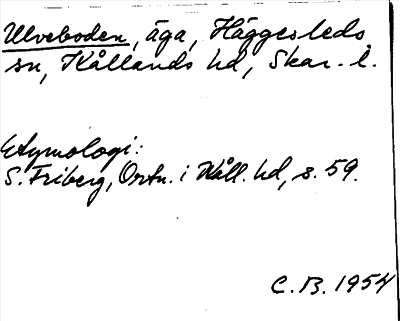 Ulveboden, äga, Häggesleds
sn, Kållands hd, Skar. l.
Etymologi:
S. Friberg, Ortn. i Kåll. hd, s. 59.
C. B. 1954